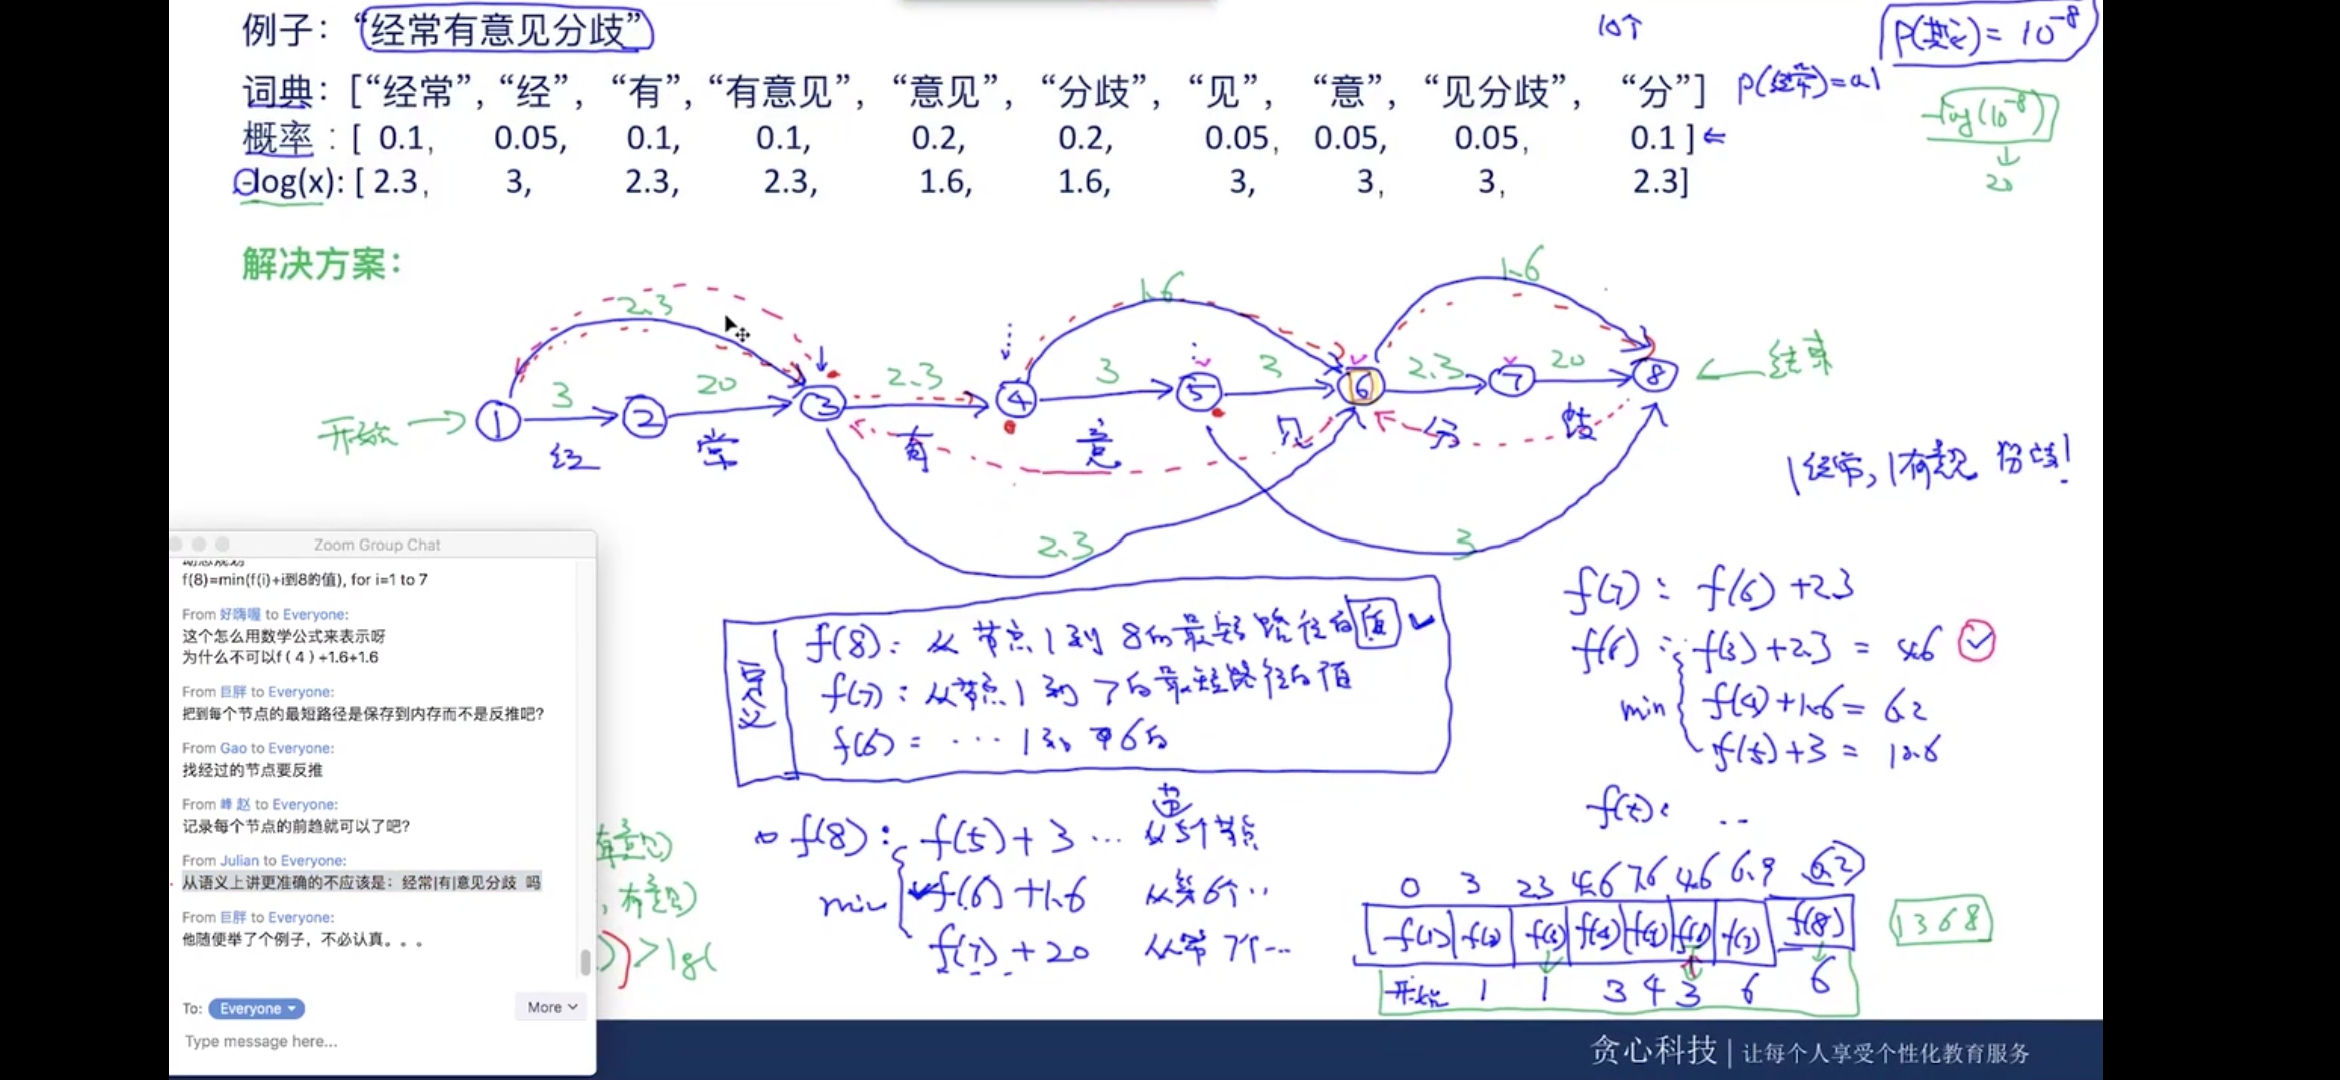 例子：“经常有意见分歧”
10个
P(其它) = 10⁻⁸
词典：[“经常”, “经”, “有”, “有意见”, “意见”, “分歧”, “见”, “意”, “见分歧”, “分”]
P(经常)=0.1
概率：[ 0.1, 0.05, 0.1, 0.1, 0.2, 0.2, 0.05, 0.05, 0.05, 0.1 ] ←
-log(10⁻⁸)
↓
20
-log(x): [ 2.3, 3, 2.3, 2.3, 1.6, 1.6, 3, 3, 3, 2.3]
解决方案：
2.3 1.6 1.6
3 20 2.3 3 3 2.3 20
开始 → ① ② ③ ④ ⑤ ⑥ ⑦ ⑧ ← 结束
经 常 有 意 见 分 歧
2.3 3
|经常,|有意见 分歧!
定义
f(8): 从节点1到8的最短路径的值
f(7): 从节点1到7的最短路径的值
f(6) = ... 1到 6的
f(7): f(6) + 2.3
f(6): f(3) + 2.3 = 4.6
min f(4) + 1.6 = 6.2
f(5) + 3 = 10.6
f(5): ..
f(8): f(5) + 3 ... 从5个节点
min f(6) + 1.6 从第6个..
f(7) + 20 从第7个...
0 3 2.3 4.6 7.6 4.6 6.9 6.2
f(1) f(2) f(3) f(4) f(5) f(6) f(7) f(8)
开始 1 1 3 4 3 6 6
1 3 6 8
有意见)
, 有意见)
)) > log(
Zoom Group Chat
动态规划
f(8)=min(f(i)+i到8的值), for i=1 to 7
From 好嗨喔 to Everyone:
这个怎么用数学公式来表示呀
为什么不可以f ( 4 ) +1.6+1.6
From 巨胖 to Everyone:
把到每个节点的最短路径是保存到内存而不是反推吧?
From Gao to Everyone:
找经过的节点要反推
From 峰 赵 to Everyone:
记录每个节点的前趋就可以了吧?
From Julian to Everyone:
从语义上讲更准确的不应该是：经常|有|意见分歧 吗
From 巨胖 to Everyone:
他随便举了个例子，不必认真。。。
To: Everyone
More
Type message here...
贪心科技 | 让每个人享受个性化教育服务